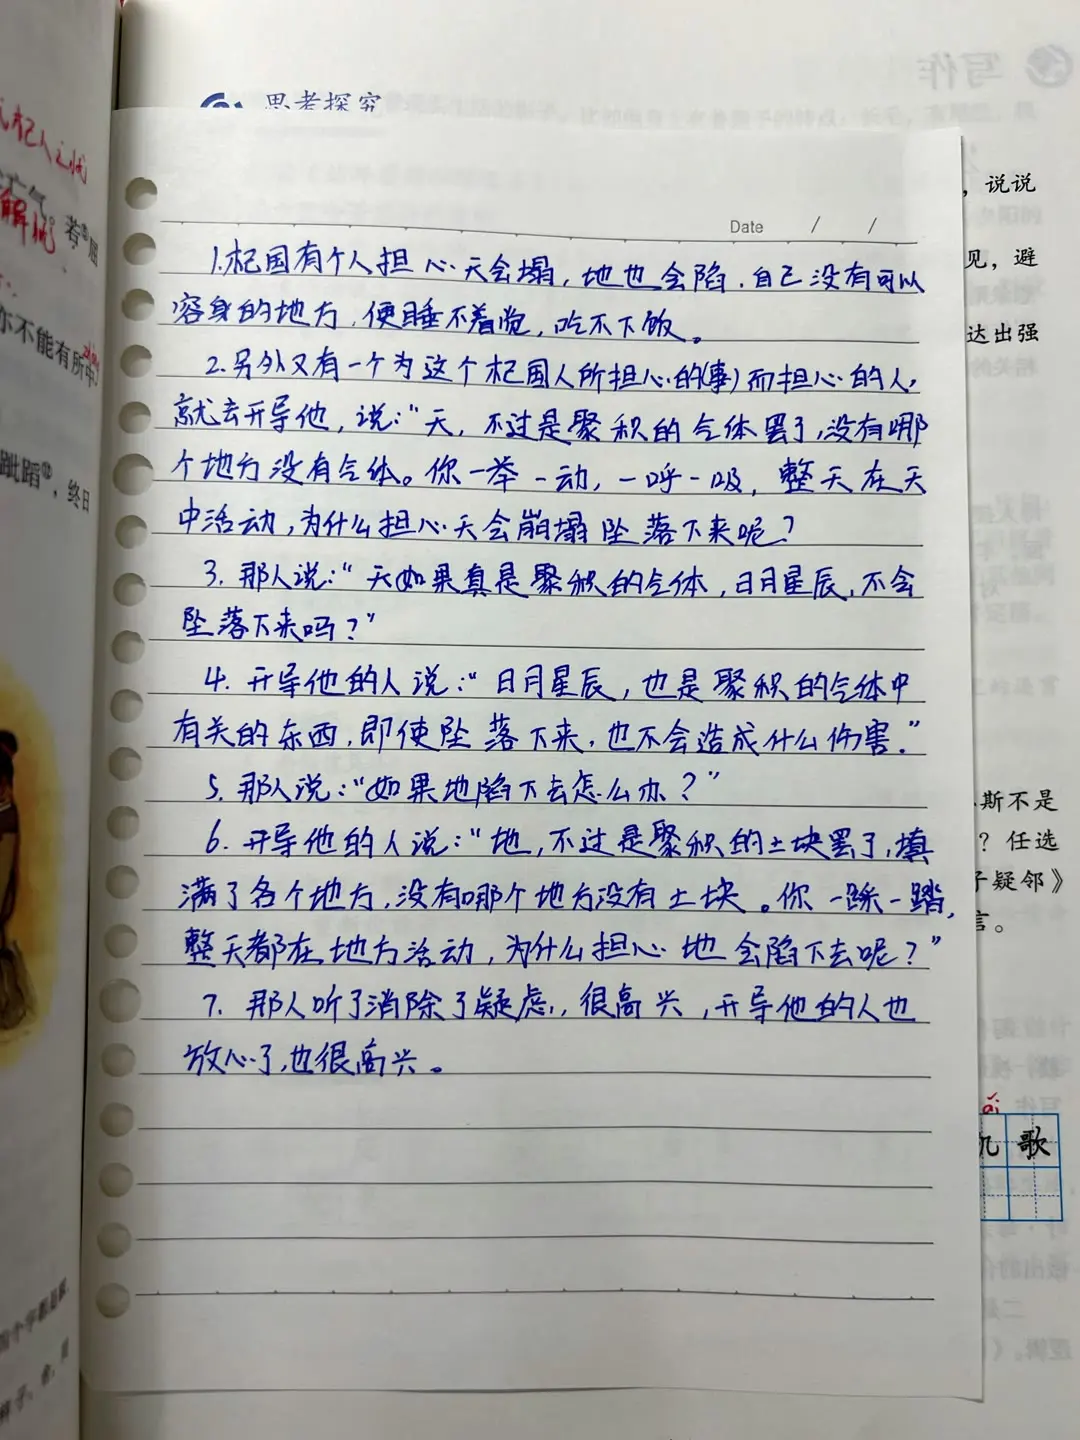 思考探究
写作
Date / /
1.杞国有个人担心天会塌，地也会陷，自己没有可以
容身的地方，便睡不着觉，吃不下饭。
2.另外又有一个为这个杞国人所担心的(事)而担心的人，
就去开导他，说："天，不过是聚积的气体罢了，没有哪
个地方没有气体。你一举一动，一呼一吸，整天在天
中活动，为什么担心天会崩塌坠落下来呢？
3. 那人说："天如果真是聚积的气体，日月星辰，不会
坠落下来吗？"
4. 开导他的人说："日月星辰，也是聚积的气体中
有关的东西，即使坠落下来，也不会造成什么伤害."
5. 那人说："如果地陷下去怎么办？"
6. 开导他的人说："地，不过是聚积的土块罢了，填
满了各个地方，没有哪个地方没有土块。你一跺一踏，
整天都在地方活动，为什么担心地会陷下去呢？"
7. 那人听了消除了疑虑，很高兴，开导他的人也
放心了，也很高兴。
杞人之忧
气。若
解忧
不能有所中
跐蹈⑫，终日
，说说
见，避
达出强
斯不是
？任选
子疑邻》
言。
歌